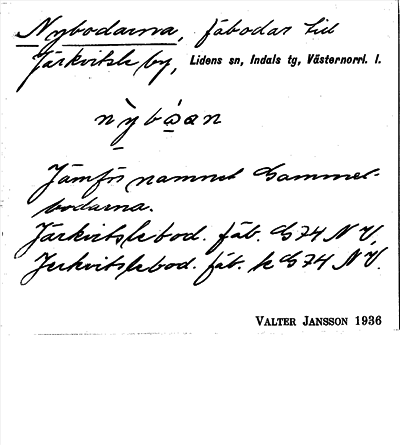 Nybodarna, fäbodar till
Järkvitsle by, Lidens sn, Indals tg, Västernorrl. l.
nỳbó̤a̤n
Jämför namnet Gammel-
bodarna.
Järkvitslebod. fäb. G74 NV,
Jerkvitslebod. fäb. k G74 NV.
VALTER JANSSON 1936